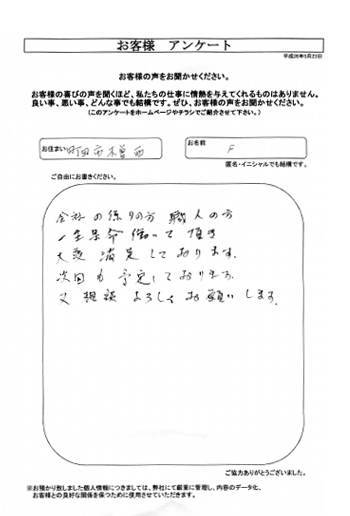 お客様 アンケート
平成26年5月23日
お客様の声をお聞かせください。
お客様の喜びの声を聞くほど、私たちの仕事に情熱を与えてくれるものはありません。
良い事、悪い事、どんな事でも結構です。ぜひ、お客様の声をお聞かせください。
(このアンケートをホームページやチラシでご紹介させて下さい。)
お住まい 町田市木曽西
お名前 F
匿名・イニシャルでも結構です。
ご自由にお書きください。
会社の係りの方 職人の方
一生懸命働いて頂き
大変満足しております。
次回も予定しております。
又相談よろしくお願いします。
ご協力ありがとうございました。
※お預かり致しました個人情報につきましては、弊社にて厳重に管理し、内容のデータ化、
お客様との良好な関係を保つために使用させていただきます。